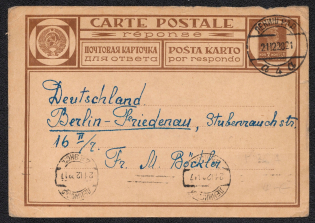 CARTE POSTALE
réponse
ПОЧТОВАЯ КАРТОЧКА
ДЛЯ ОТВЕТА
POŜTA KARTO
por respondo
Deutschland
Berlin-Friedenau, Stubenrauchstr.
16 II/r.
Fr. M. Böckler